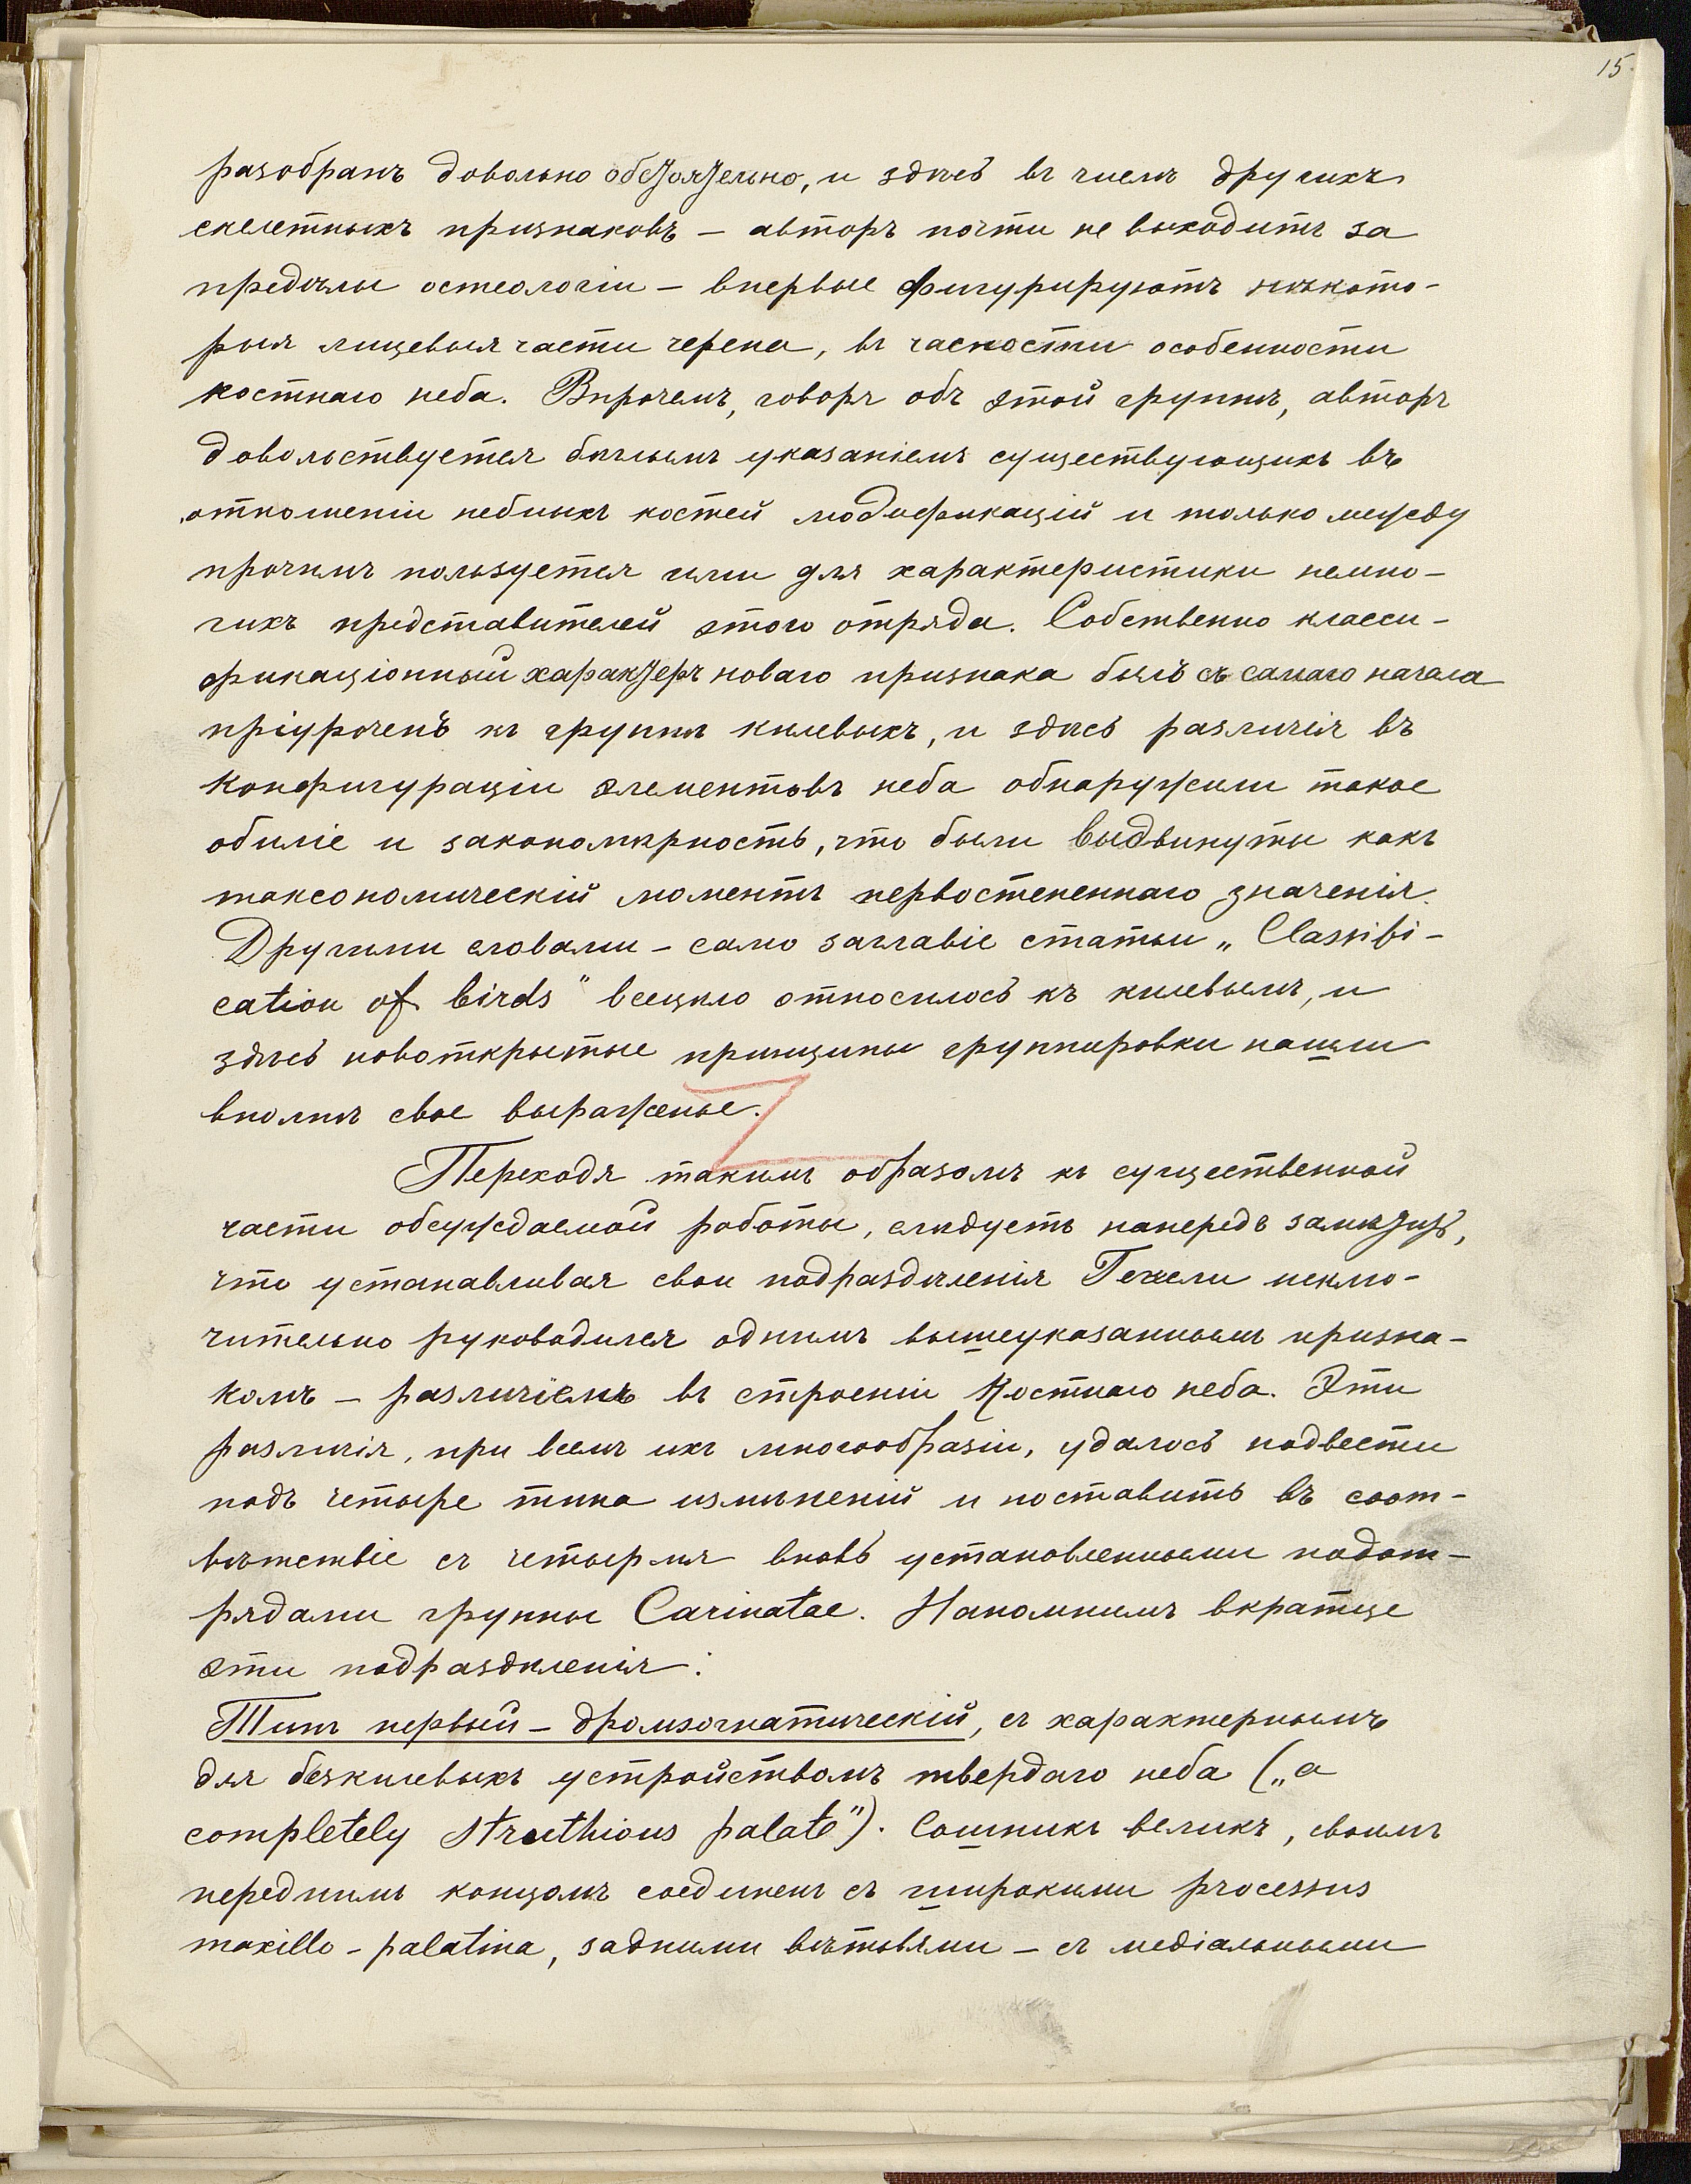 15.
разобранъ довольно обстоятельно, и здѣсь въ числѣ другихъ
скелетныхъ признаковъ – авторъ почти не выходитъ за
предѣлы остеологіи – впервые фигурируютъ нѣкото-
рыя лицевыя части черепа, въ частности особенности
костнаго неба. Впрочемъ, говоря объ этой группѣ, авторъ
довольствуется бѣглымъ указаніемъ существующихъ въ
отношеніи небныхъ костей модификацій и только между
прочимъ пользуется ими для характеристики немно-
гихъ представителей этого отряда. Собственно класси-
фикаціонный характеръ новаго признака былъ съ самаго начала
пріуроченъ къ группѣ килевыхъ, и здѣсь различія въ
конфигураціи элементовъ неба обнаружили такое
обиліе и закономѣрность, что были выдвинуты какъ
таксономическій моментъ первостепеннаго значенія.
Другими словами – само заглавіе статьи „Classifi-
cation of birds" всецѣло относилось къ килевымъ, и
здѣсь новоткрытые принципы группировки нашли
вполнѣ свое выраженье.
Переходя такимъ образомъ къ существенной
части обсуждаемой работы, слѣдуетъ напередъ замѣтить,
что устанавливая свои подраздѣленія Гексли исклю-
чительно руководился однимъ вышеуказаннымъ призна-
комъ – различіемъ въ строеніи костнаго неба. Эти
различія, при всемъ ихъ многообразіи, удалось подвести
подъ четыре типа измѣненій и поставить въ соот-
вѣтствіе съ четырмя вновь установленными подот-
рядами группы Carinatae. Напомнимъ вкратце
эти подраздѣленія:
Типъ первый – дромэогнатическій, съ характернымъ
для безкилевыхъ устройствомъ твердаго неба („a
completely struthious palate"). Сошникъ великъ, своимъ
переднимъ концомъ соединенъ съ широкими processus
maxillo-palatina, задними вѣтвями – съ медіальными